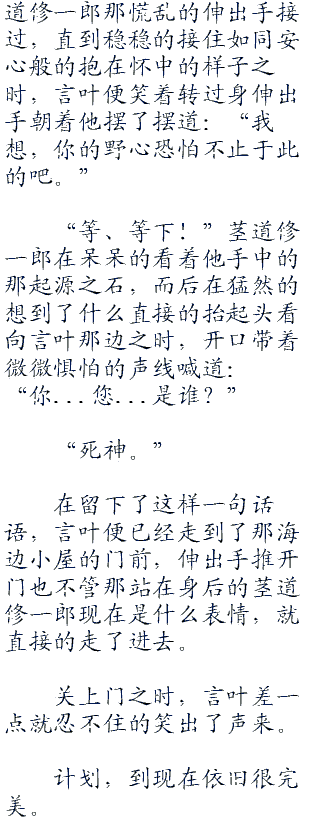 道修一郎那慌乱的伸出手接
过，直到稳稳的接住如同安
心般的抱在怀中的样子之
时，言叶便笑着转过身伸出
手朝着他摆了摆道：“我
想，你的野心恐怕不止于此
的吧。”
“等、等下！”茎道修
一郎在呆呆的看着他手中的
那起源之石，而后在猛然的
想到了什么直接的抬起头看
向言叶那边之时，开口带着
微微惧怕的声线喊道：
“你...您...是谁？”
“死神。”
在留下了这样一句话
语，言叶便已经走到了那海
边小屋的门前，伸出手推开
门也不管那站在身后的茎道
修一郎现在是什么表情，就
直接的走了进去。
关上门之时，言叶差一
点就忍不住的笑出了声来。
计划，到现在依旧很完
美。